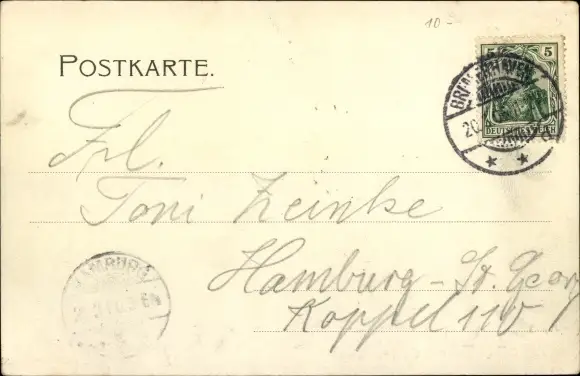 10-
POSTKARTE.
5 5
DEUTSCHES REICH
GRIMMERSHAVEN
20.
Frl.
Toni Zeinke
Hamburg - St. Georg
Koppel 110.
HAMBURG